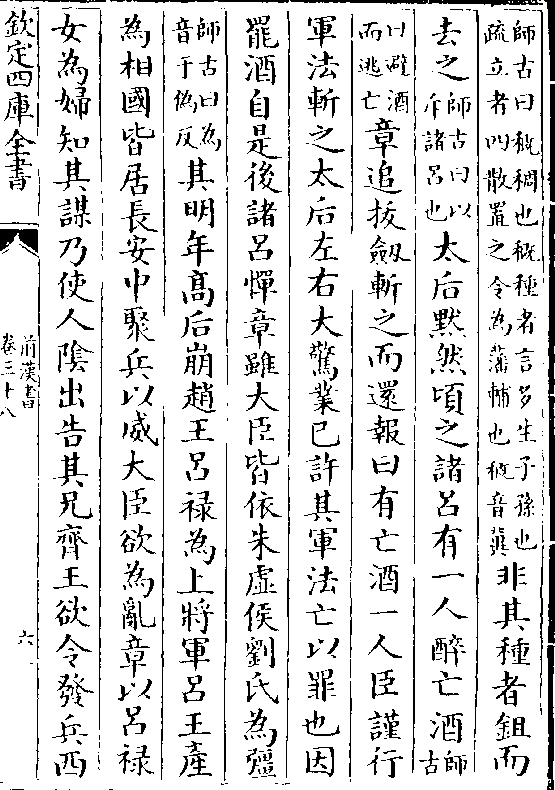 師古曰概稠也概種者言多生子孫也
疏立者四散置之令為藩輔也概音冀
非其種者鉏而
去之
師古曰以
斥諸吕也
太后黙然頃之諸吕有一人醉亡酒
師古
曰避酒
而逃亡
章追拔劔斬之而還報曰有亡酒一人臣謹行
軍法斬之太后左右大驚業已許其軍法亡以罪也因
罷酒自是後諸吕憚章雖大臣皆依朱虚侯劉氏為彊
師古曰為
音于偽反
其明年髙后崩趙王吕禄為上將軍吕王產
為相國皆居長安中聚兵以威大臣欲為亂章以吕禄
女為婦知其謀乃使人隂出告其兄齊王欲令發兵西
欽定四庫全書
前漢書
卷三十八
六